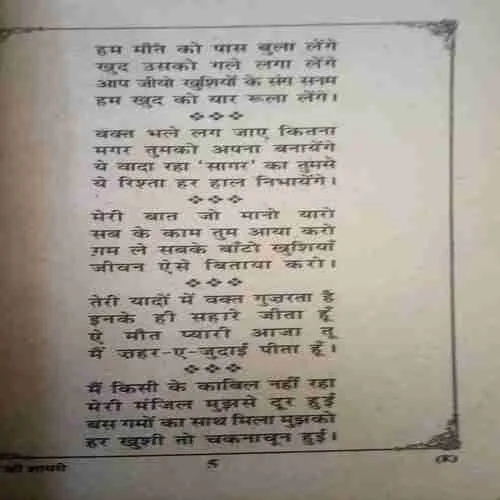 हम मौत को पास बुला लेंगे
खुद उसको गले लगा लेंगे
आप जीयो खुशियों के संग सनम
हम खुद को यार रूला लेंगे।
वक्त भले लग जाए कितना
मगर तुमको अपना बनायेंगे
ये वादा रहा 'सागर' का तुमसे
ये रिश्ता हर हाल निभायेंगे।
मेरी बात जो मानो यारो
सब के काम तुम आया करो
ग़म ले सबके बाँटो खुशियाँ
जीवन ऐसे बिताया करो।
तेरी यादों में वक्त गुज़रता है
इनके ही सहारे जीता हूँ
ऐ मौत प्यारी आजा तू
मैं ज़हर-ए-जुदाई पीता हूँ।
मैं किसी के काबिल नहीं रहा
मेरी मंजिल मुझसे दूर हुई
बस गमों का साथ मिला मुझको
हर खुशी तो चकनाचून हुई।
की शायरी 5